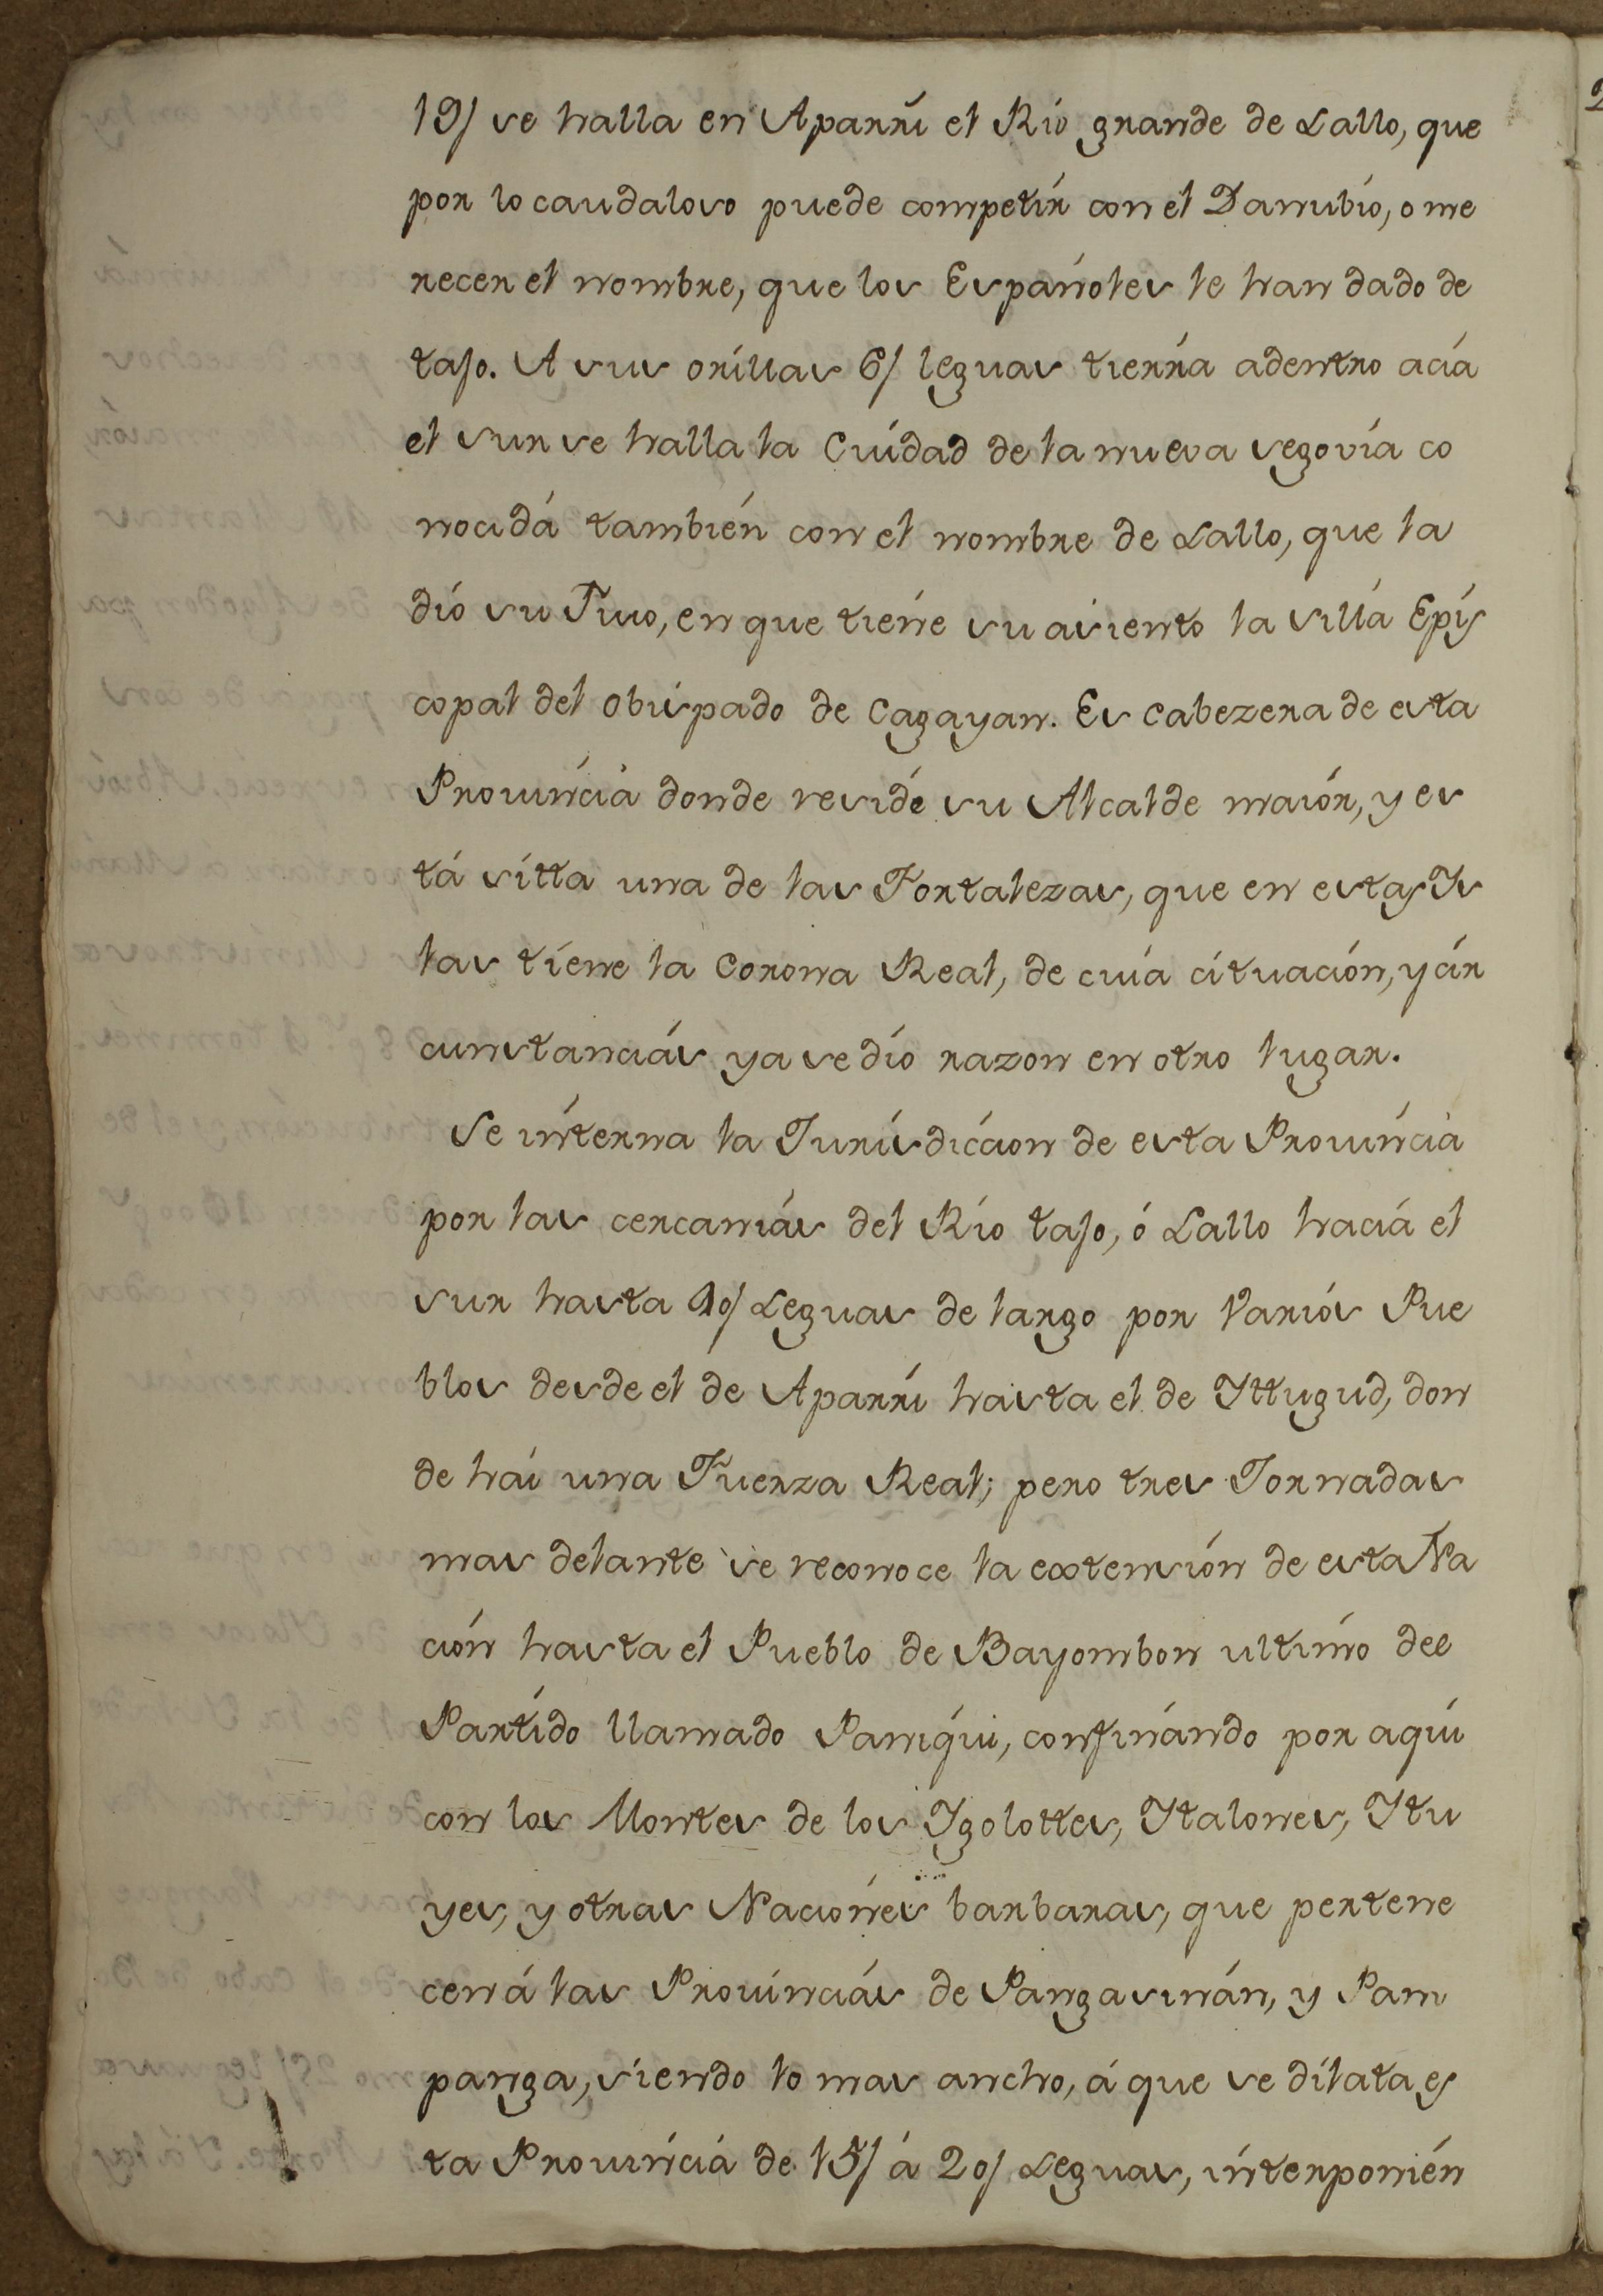 19/ se halla en Aparri el Rio grande de Lallo, que
por lo caudaloso puede competir con el Danubio, o me
recer el nombre, que los Españoles le han dado de
tajo. A sus orillas 6/ leguas tierra adentro acia
el sur se halla la Ciudad de la nueva segovia co
nocida también con el nombre de Lallo, que la
dió su Tuio, en que tiene su asiento la silla Epis
copal del obispado de Cagayan. Es cabezera de esta
Provincia donde reside su Alcalde maiór, y es
tá sitta una de las Fortalezas, que en estas Ys
las tiene la Corona Real, de cuia cituación, y cir
cunstancias ya se dío razon en otro lugar.
Se interna la Jurisdiccion de esta Provincia
por las cercanias del Río tajo, ó Lallo hacia el
sur hasta 40/ Leguas de largo por Varios Pue
blos desde el de Aparri hasta el de Yttugud, don
de hai una Fuerza Real; pero tres Jornadas
mas delante se reconoce la extensión de esta Na
ción hasta el Pueblo de Bayombon ultimo del
Partido llamado Paniqui, confinando por aqui
con los Montes de los Ygolottes, Ytalones, Ytu
yes, y otras Naciones barbaras, que pertene
cen á las Provincias de Pangasinán, y Pam
panga, siendo lo mas ancho, á que se dilata es
ta Provincia de 15/ á 20/ Leguas, interponién
2